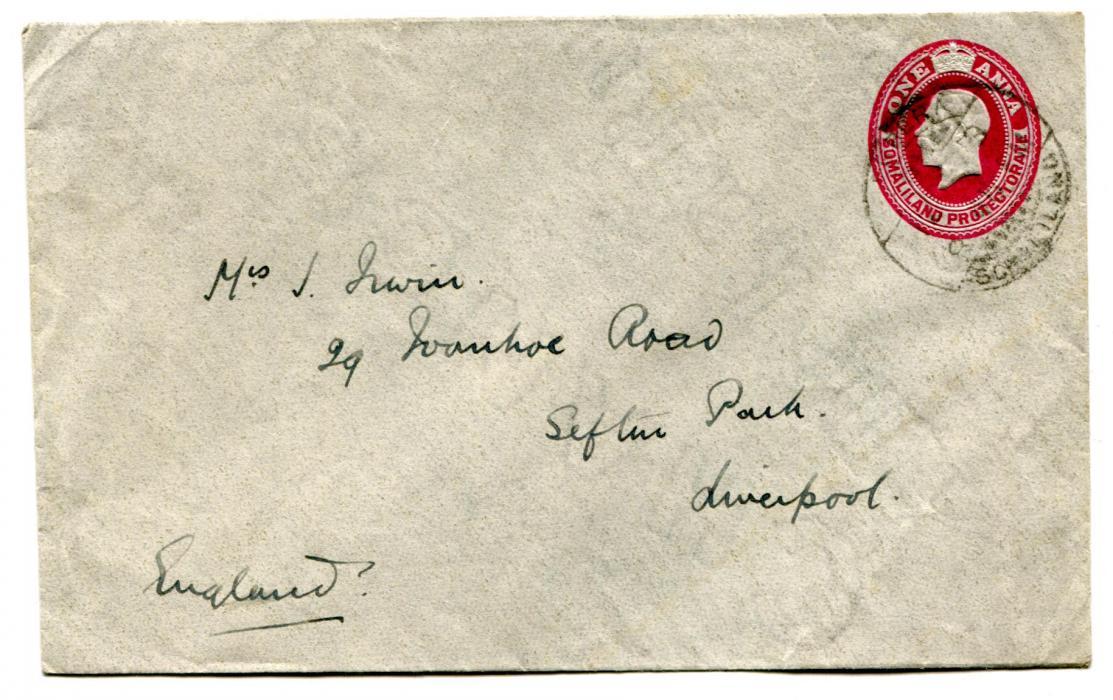 ONE ANNA
SOMALILAND PROTECTORATE
SOMALILAND
Mrs J. Irwin.
29 Ivanhoe Road
Sefton Park.
Liverpool.
England.